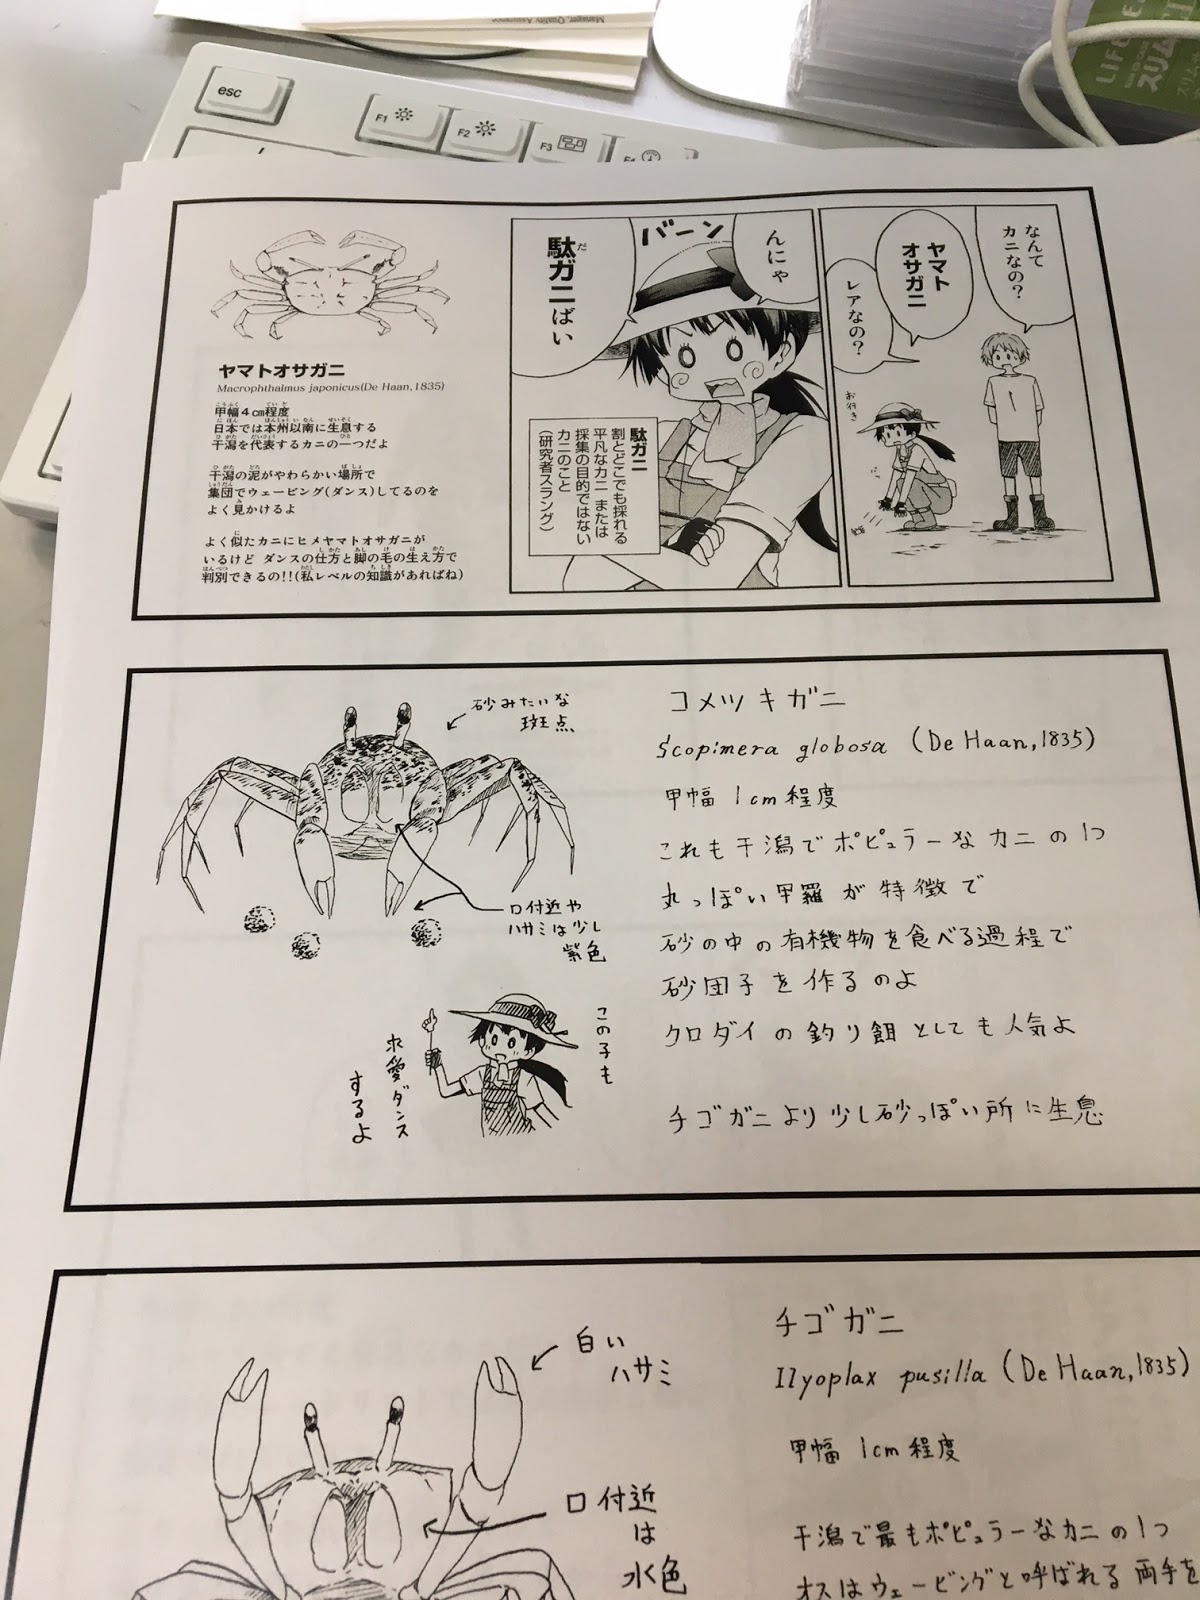 Manager, Quality Assurance
LIFE
スリム
esc
F1
F2
F3
なんて
カニなの?
ヤマト
オサガニ
レアなの?
お行き
んにゃ
バーン
駄ガニばい
駄ガニ
割とどこでも採れる
平凡なカニ または
採集の目的ではない
カニのこと
(研究者スラング)
ヤマトオサガニ
Macrophthalmus japonicus(De Haan,1835)
甲幅4cm程度
日本では本州以南に生息する
干潟を代表するカニの一つだよ
干潟の泥がやわらかい場所で
集団でウェービング(ダンス)してるのを
よく見かけるよ
よく似たカニにヒメヤマトオサガニが
いるけど ダンスの仕方と脚の毛の生え方で
判別できるの!!(私レベルの知識があればね)
砂みたいな
斑点
口付近や
ハサミは少し
紫色
この子も
求愛ダンス
するよ
コメツキガニ
Scopimera globosa (De Haan,1835)
甲幅 1cm程度
これも干潟でポピュラーなカニの1つ
丸っぽい甲羅が特徴で
砂の中の有機物を食べる過程で
砂団子を作るのよ
クロダイの釣り餌としても人気よ
チゴガニより少し砂っぽい所に生息
白い
ハサミ
口付近
は
水色
チゴガニ
Ilyoplax pusilla (De Haan,1835)
甲幅 1cm程度
干潟で最もポピュラーなカニの1つ
オスはウェービングと呼ばれる両手を